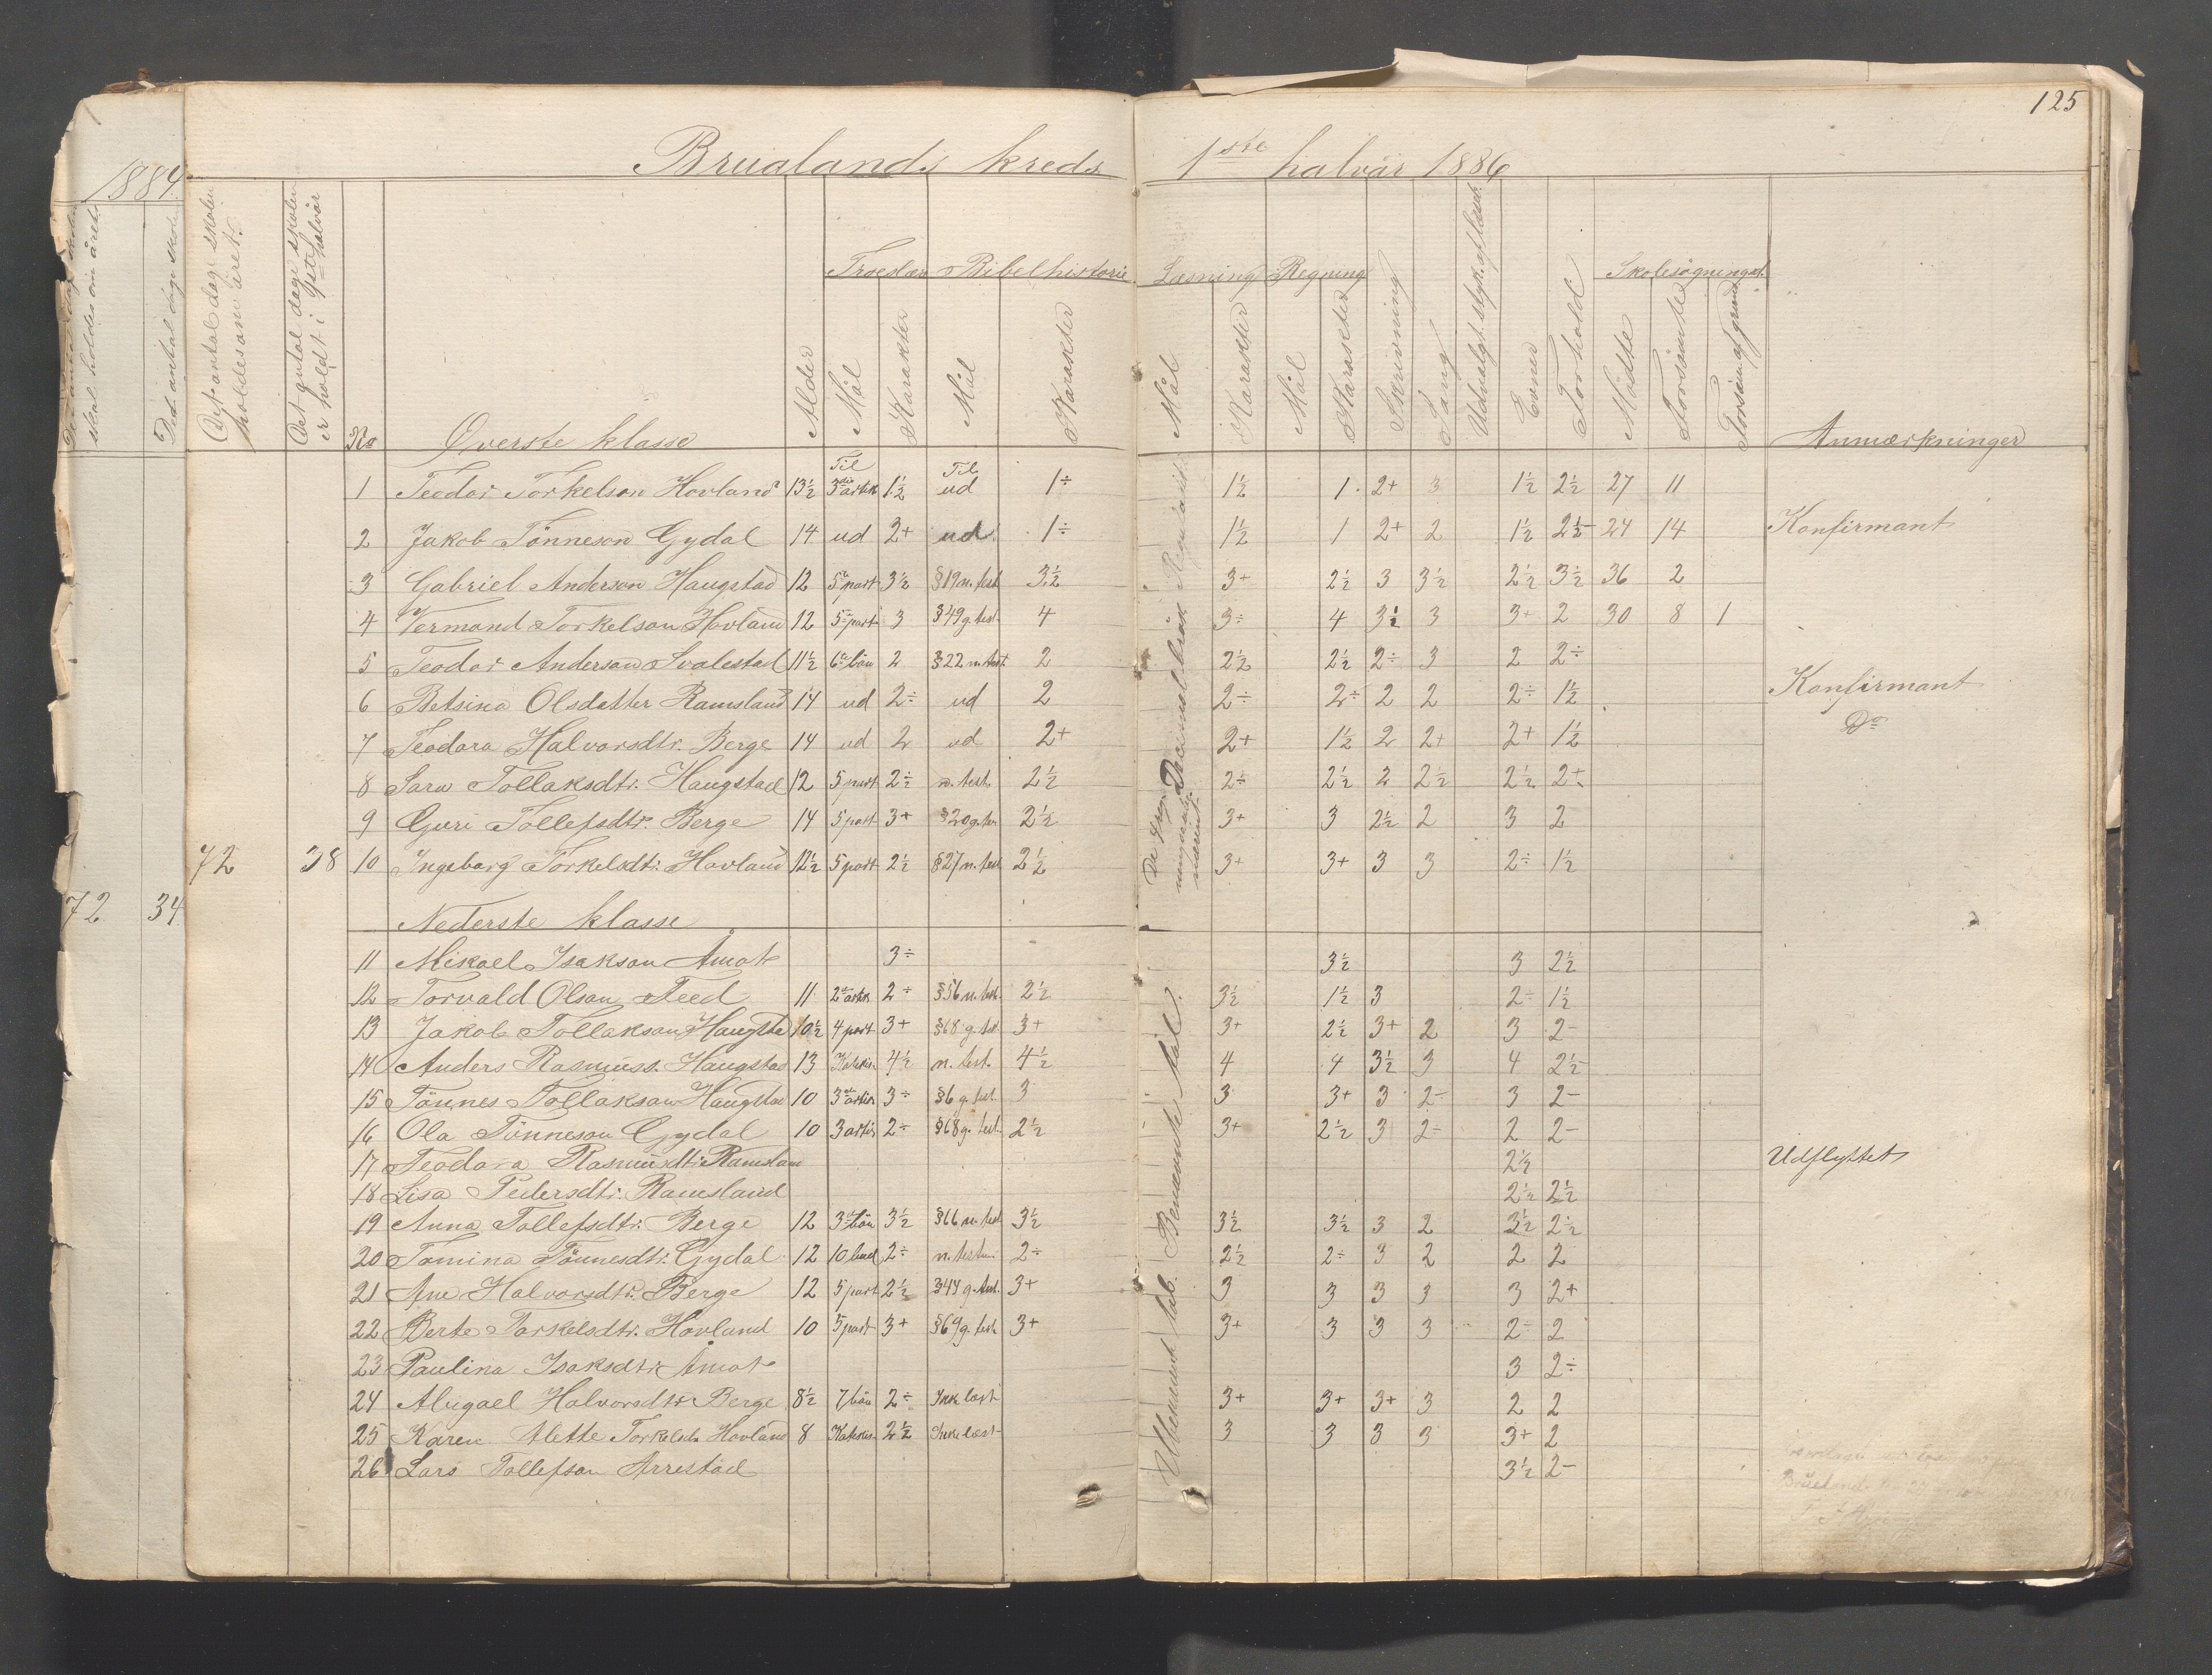 125
1884
Brualands kreds 1ste halvår 1886
Det antal dage skolen skal holdes om året.
Det antal dage skolen
Det antal dage skolen holdes om året.
Det antal dage skolen er holdt i 1ste halvår
No Øverste klasse Alder
Troeslære Bibelhistorie Læsning Regning Skolesøgningen
Mål Karakter Mål Karakter Mål Karakter Mål Karakter Skrivning Sang Udvalgt. styk. af læseb. Evner Forhold Mødte Forsømte Forsøm. af grund Anmærkninger
1 Teodor Torkelson Hovland 13½ Til 3die artik 1½ Til ud 1÷ 1½ 1 2+ 3 1½ 2½ 27 11
2 Jakob Tönneson Gydal 14 ud 2+ ud 1÷ 1½ 1 2+ 2 1½ 2½- 24 14 Konfirmant
3 Gabriel Anderson Haugstad 12 5te part 3½ §19 n. test 3½ 3+ 2½ 3 3½ 2½ 3½ 36 2
4 Vermond Torkelson Hovland 12 5te part 3 §49 g. test. 4 3÷ 4 3½ 3 3+ 2 30 8 1
5 Teodor Anderson Svalestad 11½ 6te bön 2 §22 n. test 2 2½ 2½ 2÷ 3 2 2÷
6 Betsina Olsdatter Ramsland 14 ud 2÷ ud 2 2÷ 2÷ 2 2 2÷ 1½ Konfirmant
7 Teodora Halvorsdtr. Berge 14 ud 2 ud 2+ 2+ 1½ 2 2+ 2+ 1½ Do
8 Sara Tollaksdtr. Haugstad 12 5 part 2÷ n. test. 2½ 2÷ 2½ 2 2½ 2½ 2+
9 Guri Tollefsdtr. Berge 14 5 part 3+ §20 g. tes 2½ 3+ 3 2½ 2 3 2
72 38 10 Ingeborg Torkelsdtr. Hovland 12½ 5 part 2½ §27 n. test 2½ 3+ 3+ 3 3 2÷ 1½
72 34
Nederste klasse
11 Mikael Isakson Åmot 3÷ 3½ 3 2½
12 Torvald Olson Teed 11 2den artik 2÷ §56 n. test. 2½ 3½ 1½ 3 2÷ 1½
13 Jakob Tollakson Haugsta 10½ 4 part 3+ §68 g. tes. 3+ 3+ 2½ 3+ 2 3 2-
14 Anders Rasmuss. Haugstad 13 Katekis. 4½ n. test. 4½ 4 4 3½ 3 4 2½-
15 Tönnes Tollakson Haugstad 10 3die artik 3÷ §6 g. test. 3 3 3+ 3 2- 3 2-
16 Ola Tönneson Gydal 10 3 artik 2÷ §68 g. test. 2½ 3+ 2½ 3 2- 2 2-
17 Teodora Rasmusdtr. Ramslan 2½ Udflyttet
18 Lisa Pedersdtr. Ramsland 2½ 2½
19 Anna Tollefsdtr. Berge 12 3die bön 3½ §66 n. test 3½ 3½ 3½ 3 2 3½ 2½
20 Tomina Tönnesdtr. Gydal 12 10 bud 2÷ n. testm. 2÷ 2½ 2÷ 3 2 2 2
21 Ane Halvorsdtr. Berge 12 5 part 2½ §44 g. test. 3+ 3 3 3 3 3 2+
22 Berte Torkelsdtr. Hovland 10 5 part 3+ §69 g. test 3+ 3+ 3 3 3 2÷ 2
23 Paulina Isaksdtr. Åmot 3 2÷
24 Abigael Halvorsdtr Berge 8½ 7 bön 2÷ Ikke læst 3+ 3+ 3+ 3 2 2
25 Karen Alette Torkelsd. Hovland 8 Katekis. 2½ Ikke læst 3 3 3 3 3+ 2
26 Lars Tollefson Arrestad 3½ 2-
Decimalbrök
Ubenævnt Benævnte tal.